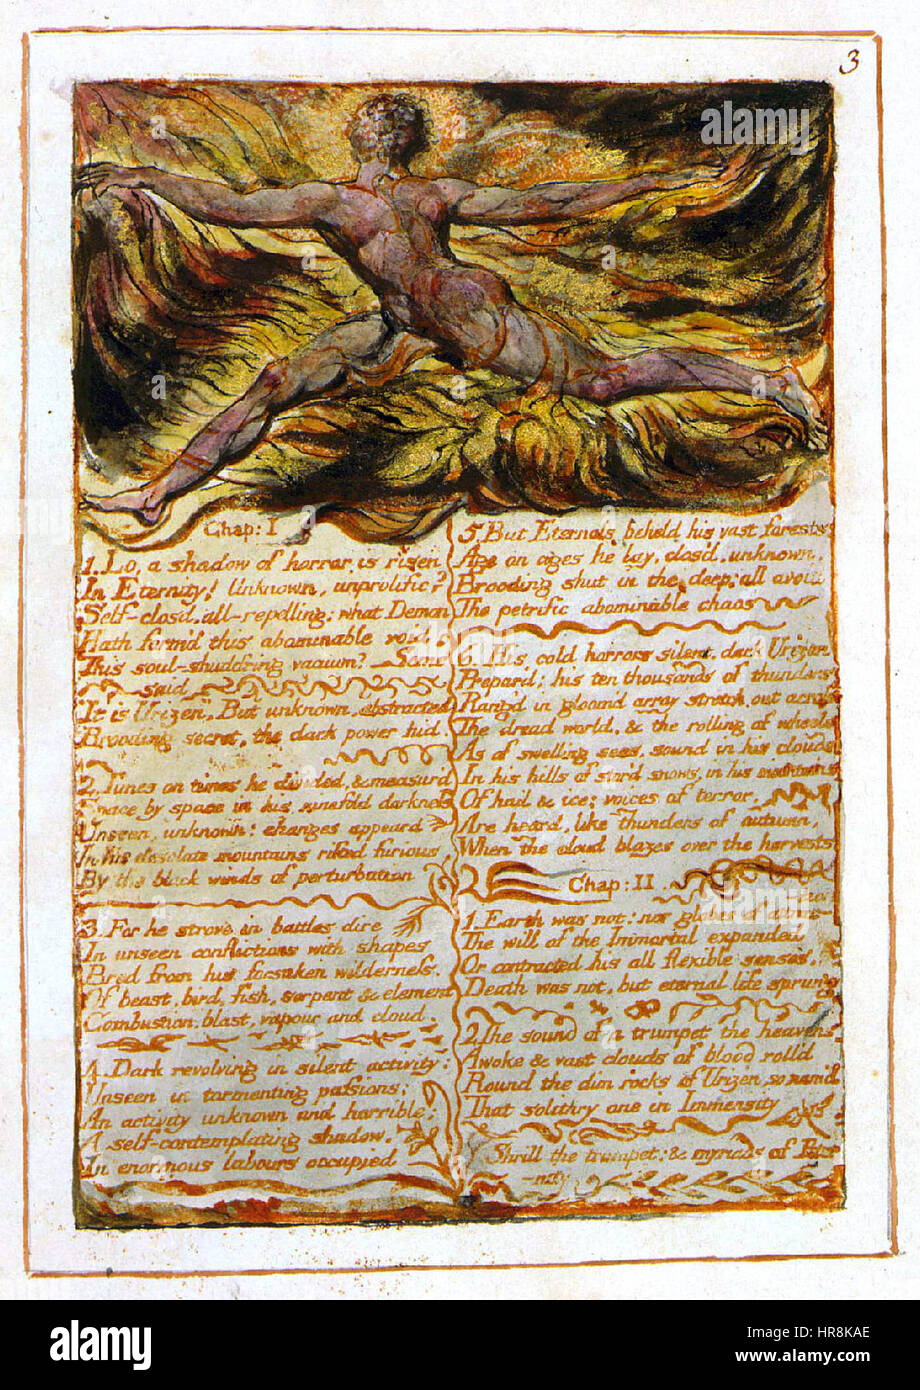 3
Chap: I
1. Lo, a shadow of horror is risen
In Eternity! Unknown, unprolific?
Self-closd, all-repelling: what Demon
Hath form'd this abominable void
This soul-shudd'ring vacuum? Some
said
"It is Urizen", But unknown, abstracted
Brooding secret, the dark power hid.
2. Times on times he divided, & measur'd
Space by space in his ninefold darkness
Unseen, unknown: changes appeard
In his desolate mountains rifted furious
By the black winds of perturbation
3. For he strove in battles dire
In unseen conflictions with shapes
Bred from his forsaken wilderness,
Of beast, bird, fish, serpent & element
Combustion, blast, vapour and cloud.
4. Dark revolving in silent activity:
Unseen in tormenting passions;
An activity unknown and horrible;
A self-contemplating shadow,
In enormous labours occupied
5. But Eternals beheld his vast forests
Age on ages he lay, clos'd, unknown,
Brooding shut in the deep; all avoid
The petrific abominable chaos
6. His cold horrors silent, dark Urizen
Prepar'd: his ten thousands of thunders
Rang'd in gloom'd array stretch out across
The dread world, & the rolling of wheels
As of swelling seas, sound in his clouds
In his hills of stor'd snows, in his mountains
Of hail & ice; voices of terror,
Are heard, like thunders of autumn,
When the cloud blazes over the harvests
Chap: II
1. Earth was not: nor globes of attrac-
tion
The will of the Immortal expanded
Or contracted his all flexible senses.
Death was not, but eternal life sprung
2. The sound of a trumpet the heavens
Awoke & vast clouds of blood roll'd
Round the dim rocks of Urizen, so nam'd
That solitary one in Immensity
Shrill the trumpet: & myriads of Eter
-nity,
alamy
alamy
Image ID: HR8KAE
www.alamy.com